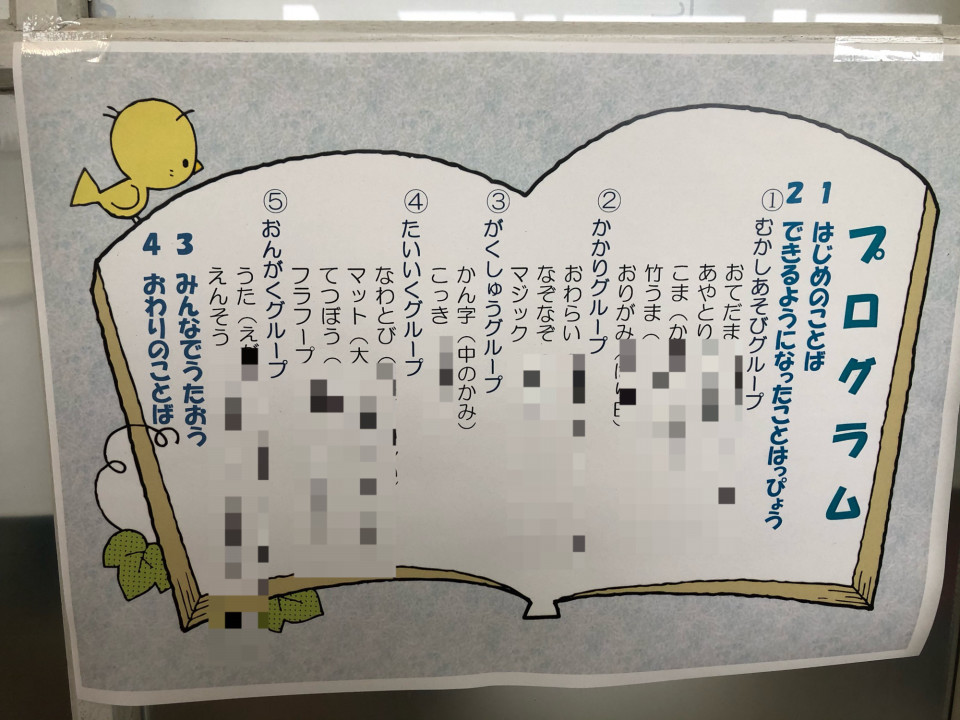 プログラム
1 はじめのことば
2 できるようになったことはっぴょう
①むかしあそびグループ
おてだま
あやとり
こま（か
竹うま（
おりがみ
②かかりグループ
おわらい
なぞなぞ
マジック
③がくしゅうグループ
かん字（中のかみ）
こっき
④たいいくグループ
なわとび（
マット（大
てつぼう（
フラフープ
⑤おんがくグループ
うた（え
えんそう
3 みんなでうたおう
4 おわりのことば